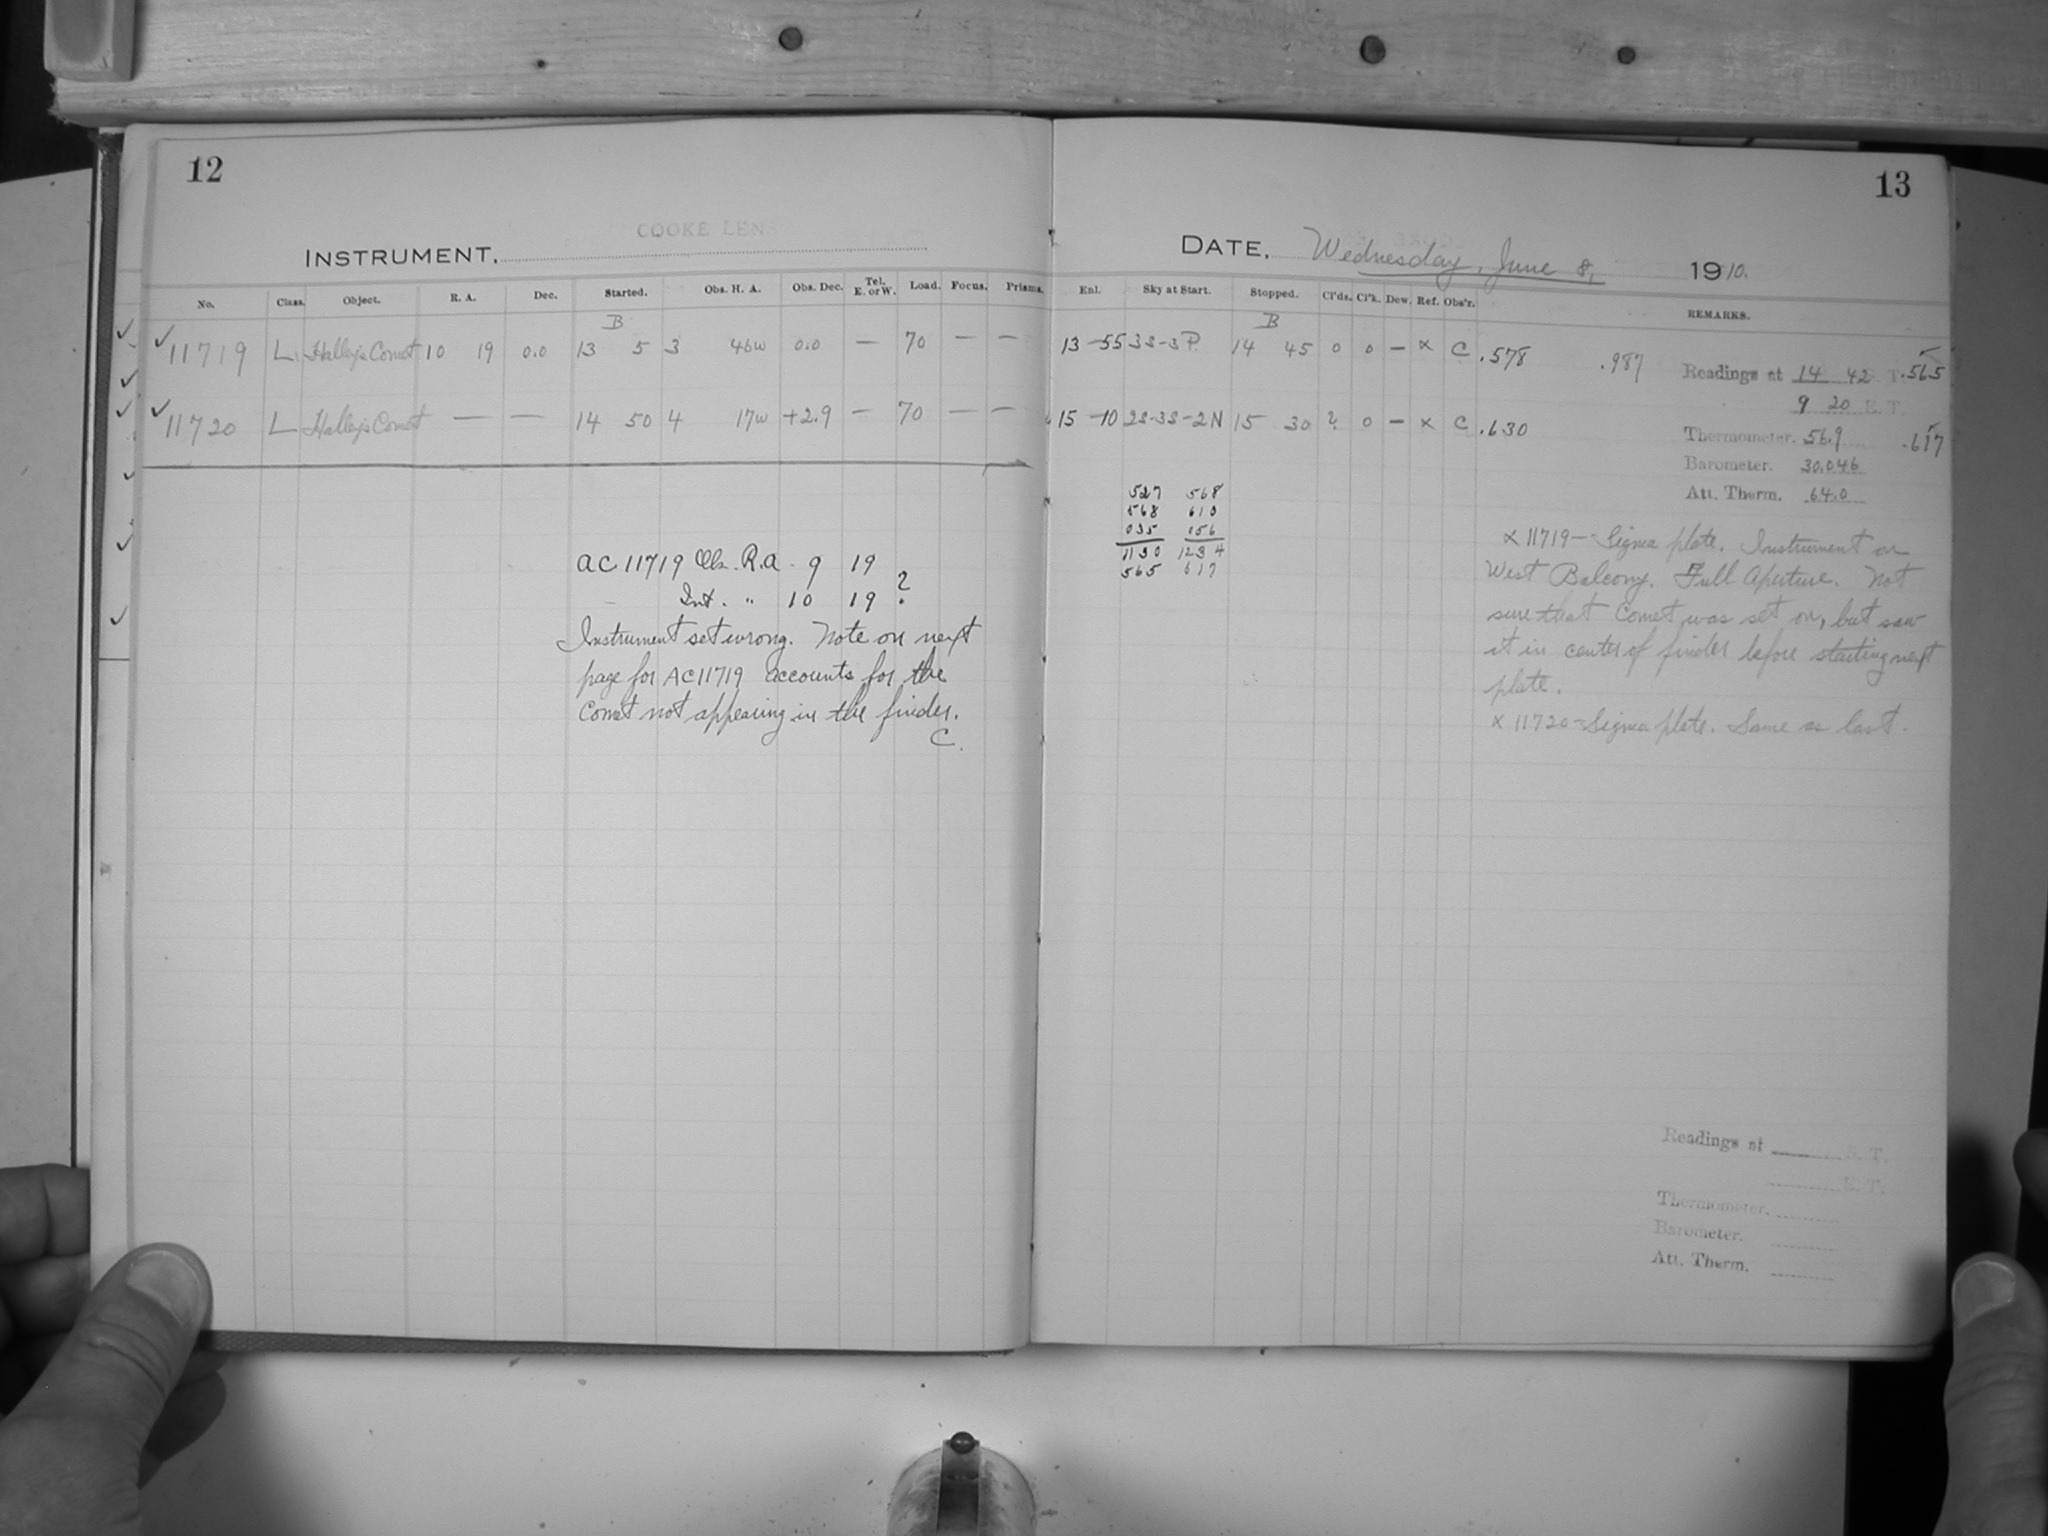 12
COOKE LENS
INSTRUMENT.
No. Class. Object. R. A. Dec. Started. Obs. H. A. Obs. Dec. Tel. E. or W. Load. Focus. Prisms.
B
11719 L Halley's Comet 10 19 0.0 13 5 3 46w 0.0 — 70 — —
11720 L Halley's Comet — — 14 50 4 17w +2.9 — 70 — —
AC 11719 Obs. R.A. 9 19
Int. " 10 19 ?
Instrument set wrong. Note on next
page for AC11719 accounts for the
Comet not appearing in the finder.
C.
13
DATE. Wednesday, June 8, 1910.
Enl. Sky at Start. Stopped. Cl'ds. Cl'k. Dew. Ref. Obs'r. REMARKS.
B
13-55 3S-3P. 14 45 0 0 — x C .578 .987
15-10 2S-3S-2N 15 30 ? 0 — x C .630
Readings at 14 42 S. T. .565
9 20 E. T.
Thermometer. 56.9 .617
Barometer. 30.046
Att. Therm. 64.0
527 568
568 610
035 056
1130 1234
565 617
x 11719— Sigma plate. Instrument on
West Balcony. Full Aperture. Not
sure that Comet was set on, but saw
it in center of finder before starting next
plate.
x 11720—Sigma plate. Same as last.
Readings at S. T.
E. T.
Thermometer.
Barometer.
Att. Therm.